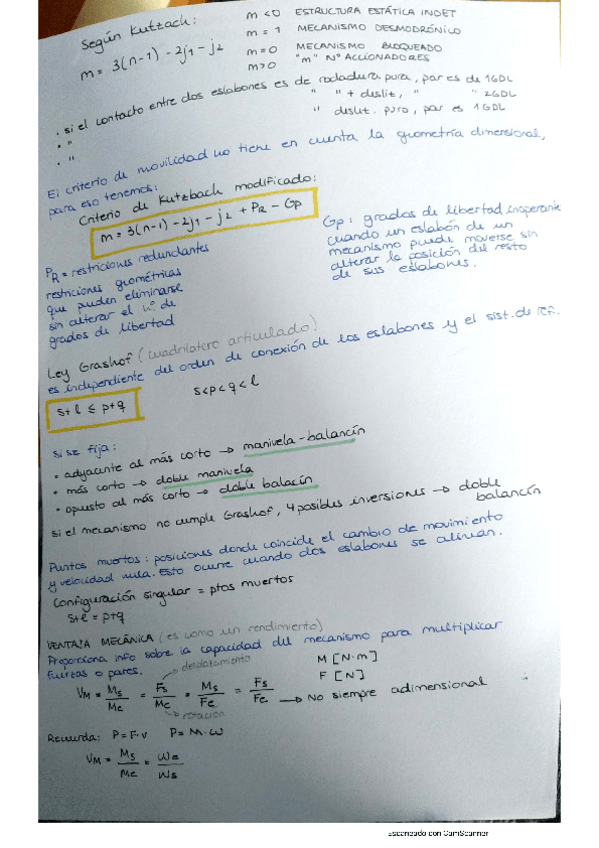 Según Kutzach:
m = 3(n-1) - 2j1 - j2
m < 0 ESTRUCTURA ESTÁTICA INDET
m = 1 MECANISMO DESMODRÓNICO
m = 0 MECANISMO BLOQUEADO
m > 0 "m" Nº ACCIONADORES
· si el contacto entre dos eslabones es de rodadura pura, par es de 1GDL
· " " " + desliz, " " 2GDL
· " " desliz. puro, par es 1GDL
El criterio de movilidad no tiene en cuenta la geometría dimensional,
para eso tenemos:
Criterio de Kutzbach modificado:
m = 3(n-1) - 2j1 - j2 + PR - Gp
PR = restricciones redundantes
restriciones geométricas
que pueden eliminarse
sin alterar el nº de
grados de libertad
Gp: grados de libertad inoperante
cuando un eslabón de un
mecanismo puede moverse sin
alterar la posición del resto
de sus eslabones.
Ley Grashof (cuadrilátero articulado)
es independiente del orden de conexión de los eslabones y el sist. de ref.
s+l ≤ p+q
s<p<q<l
si se fija:
· adyacente al más corto → manivela-balancín
· más corto → doble manivela
· opuesto al más corto → doble balacín
si el mecanismo no cumple Grashof, 4 posibles inversiones → doble
balancín
Puntos muertos: posiciones donde coincide el cambio de movimiento
y velocidad nula. Esto ocurre cuando dos eslabones se alinean.
Configuración singular = ptos muertos
s+l = p+q
VENTAJA MECÁNICA (es como un rendimiento)
Proporciona info sobre la capacidad del mecanismo para multiplicar
fuerzas o pares.
desplazamiento
M [N·m]
F [N]
VM = Ms/Me = Fs/Me = Ms/Fe = Fs/Fe → No siempre adimensional
rotación
Recuerda: P=F·v P=M·ω
VM = Ms/Me = ωe/ωs
Escaneado con CamScanner